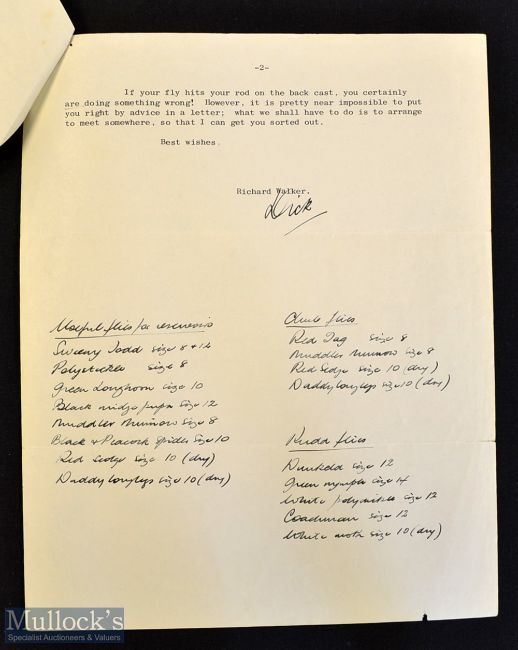 -2-
If your fly hits your rod on the back cast, you certainly
are doing something wrong! However, it is pretty near impossible to put
you right by advice in a letter; what we shall have to do is to arrange
to meet somewhere, so that I can get you sorted out.
Best wishes.
Richard Walker.
Dick
Useful flies for reservoirs
Sweeny Todd size 8 & 14
Polystickle size 8
Green Longhorn size 10
Black midge pupa size 12
Muddler Minnow size 8
Black & Peacock Spider size 10
Red Sedge size 10 (dry)
Daddy longlegs size 10 (dry)
Chub flies
Red Tag size 8
Muddler Minnow size 8
Red Sedge size 10 (dry)
Daddy longlegs size 10 (dry)
Rudd flies
Dunkeld size 12
Green nymph size 14
White size 12
Coachman size 12
White moth size 10 (dry)
Mullock's
Specialist Auctioneers & Valuers